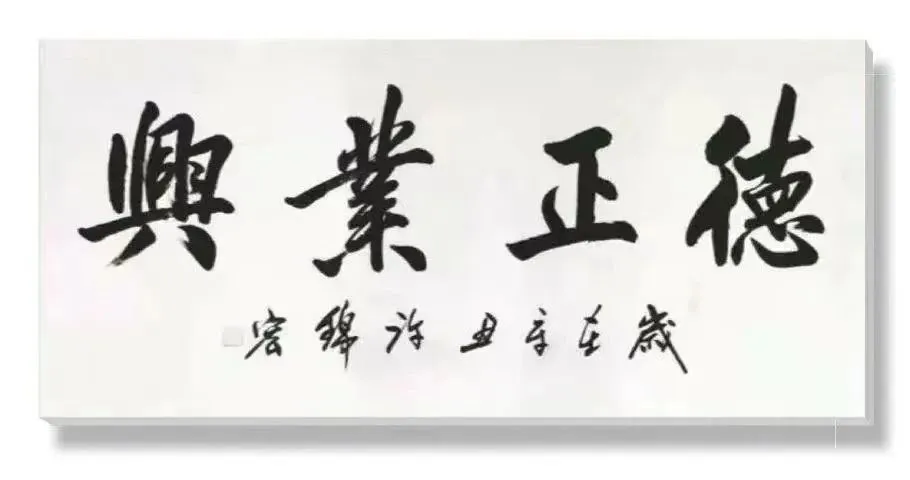 德正業興
歲在辛丑許錦宏